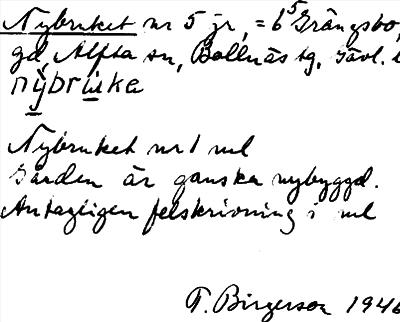 Nybruket nr 5 jr, = 6⁵ Grängsbo,
gd, Alfta sn, Bollnäs tg. Gävl. l
nybruka
Nybruket nr 1 ml
Gården är ganska nybyggd.
Antagligen felskrivning i ml
T. Birgerson 1946